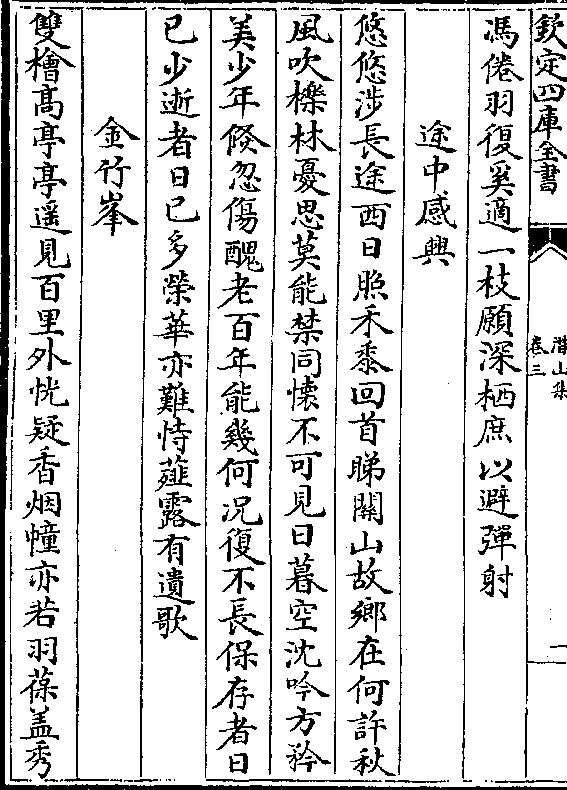 欽定四庫全書
潛山集
卷三
一
馮倦羽復奚適一枝願深栖庶以避彈射
途中感興
悠悠涉長途西日照禾黍回首睇關山故鄉在何許秋
風吹櫟林憂思莫能禁同懐不可見日暮空沈吟方矜
美少年倐忽傷醜老百年能幾何况復不長保存者日
已少逝者日已多榮華亦難恃薤露有遺歌
金竹峯
雙檜髙亭亭遥見百里外恍疑香烟幢亦若羽葆盖秀